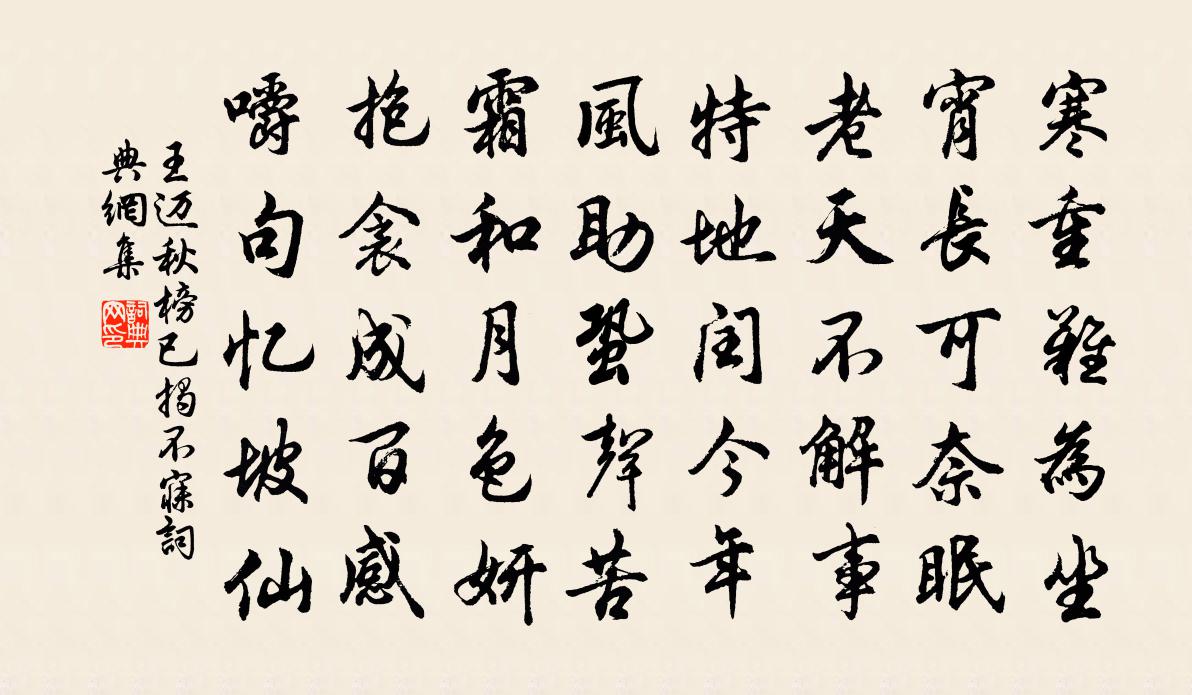 寒重難為坐
宵長可奈眠
老天不解事
特地閏今年
風助蛩聲苦
霜和月色妍
抱衾成百感
嚼句忆坡仙
王迈秋榜已揭不寐詞
典網集
詞典
网印